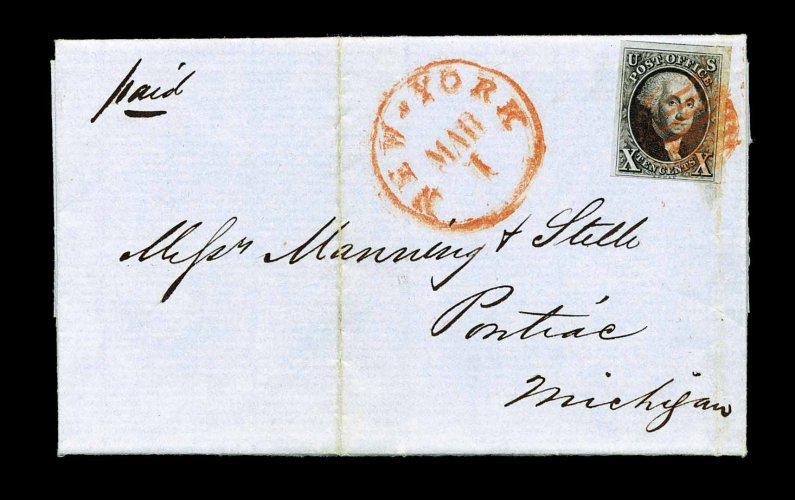 paid
NEW-YORK
MAR
1
U S
POST OFFICE
X TEN CENTS X
Messrs Manning & Stelle
Pontiac
Michigan